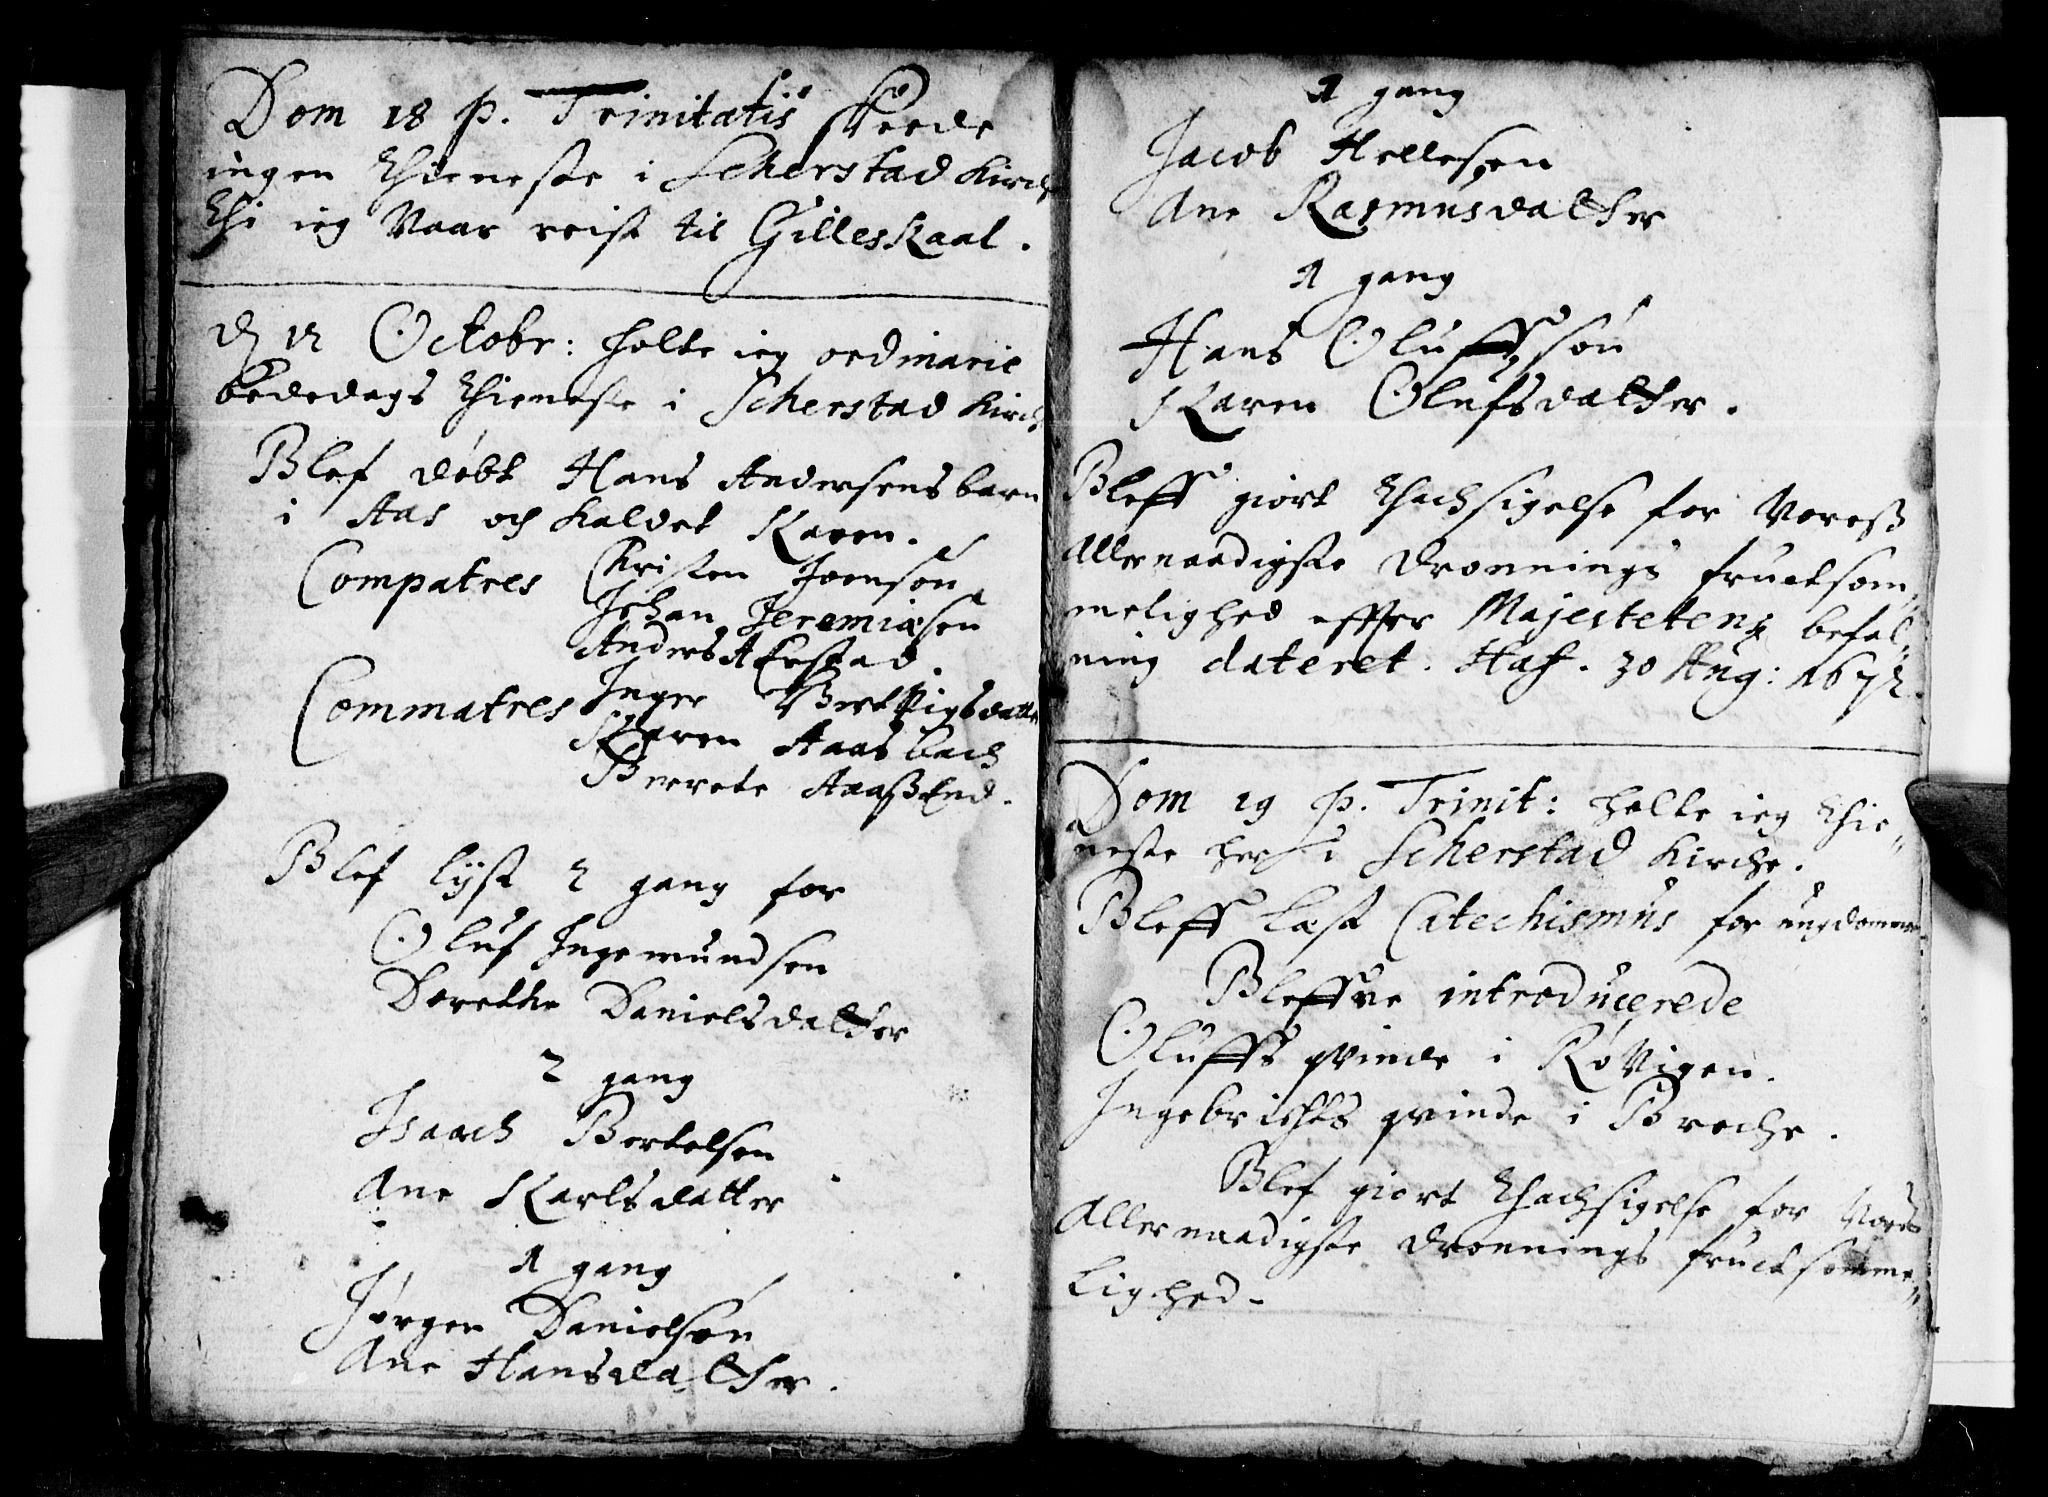 Dom 18 p. Trinitatis skeede
ingen thieneste i Scherstad Kirch
thi ieg Vaar reist til Gilleskaal.
d 12 Octobr: holte ieg ordinarie
bededags thieneste i Scherstad Kirch
Blef døbt Hans Andersens barn
i Aas och kaldet Karen.
Compatres Christen Joensøn
Johan Jeremiæsen
Anders
Commatres Inger datter
Karen Aasbach
Berete Aaß End.
Blef lyst 2 gang for
Oluf Ingemundsen
Dorethe Danielsdatther
2 gang
Isaach Bertelsen
Ane Karlsdatter
1 gang
Jørgen Danielsøn
Ane Hansdatther.
1 gang
Jacob Hellesen
Ane Rasmusdatther
1 gang
Hans Oluffsøn
Karen Olufsdatther.
Bleff giort thachsigelse for Voreß
Allernaadigste dronnings fructsom,,
melighed effter Majestetens befal,,
ning dateret. Haf. 30 Aug: 1672.
Dom 19 p. Trinit: holte ieg thie,,
neste her i Scherstad Kirche.
Bleff læst Catechismus for ungdommen
Bleffve introducerede
Oluffs qvinde i RøVigen.
Ingebrichts qvinde i Breche.
Blef giort thachsigelse for Vores
Allernaadigste dronnings fructsomme,,
lighed.